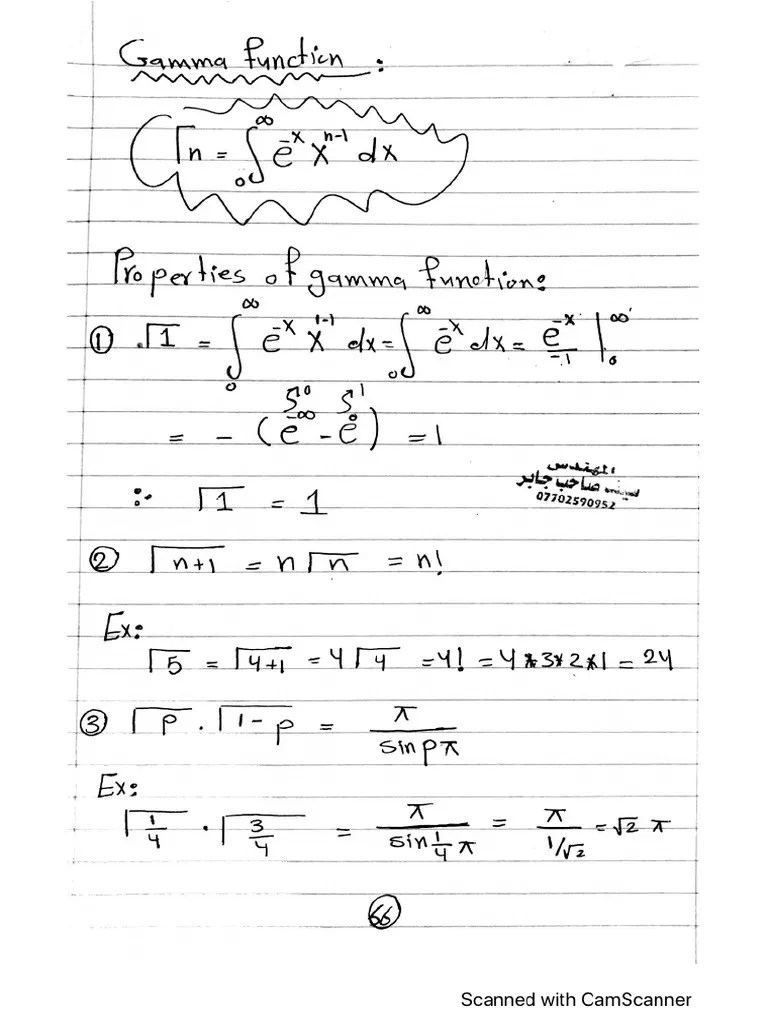 Gamma function :
Γn = ∫₀^∞ e^-x x^n-1 dx
Properties of gamma function:
① Γ1 = ∫₀^∞ e^-x x^1-1 dx = ∫₀^∞ e^-x dx = e^-x/-1 |₀^∞
0 1
= - (e^-∞ - e^0) = 1
المهندس
صاحب جابر
07702590952
∴ Γ1 = 1
② Γn+1 = n Γn = n!
Ex:
Γ5 = Γ4+1 = 4 Γ4 = 4! = 4*3*2*1 = 24
③ Γp . Γ1-p = π / sin pπ
Ex:
Γ1/4 . Γ3/4 = π / sin 1/4 π = π / 1/√2 = √2 π
66
Scanned with CamScanner